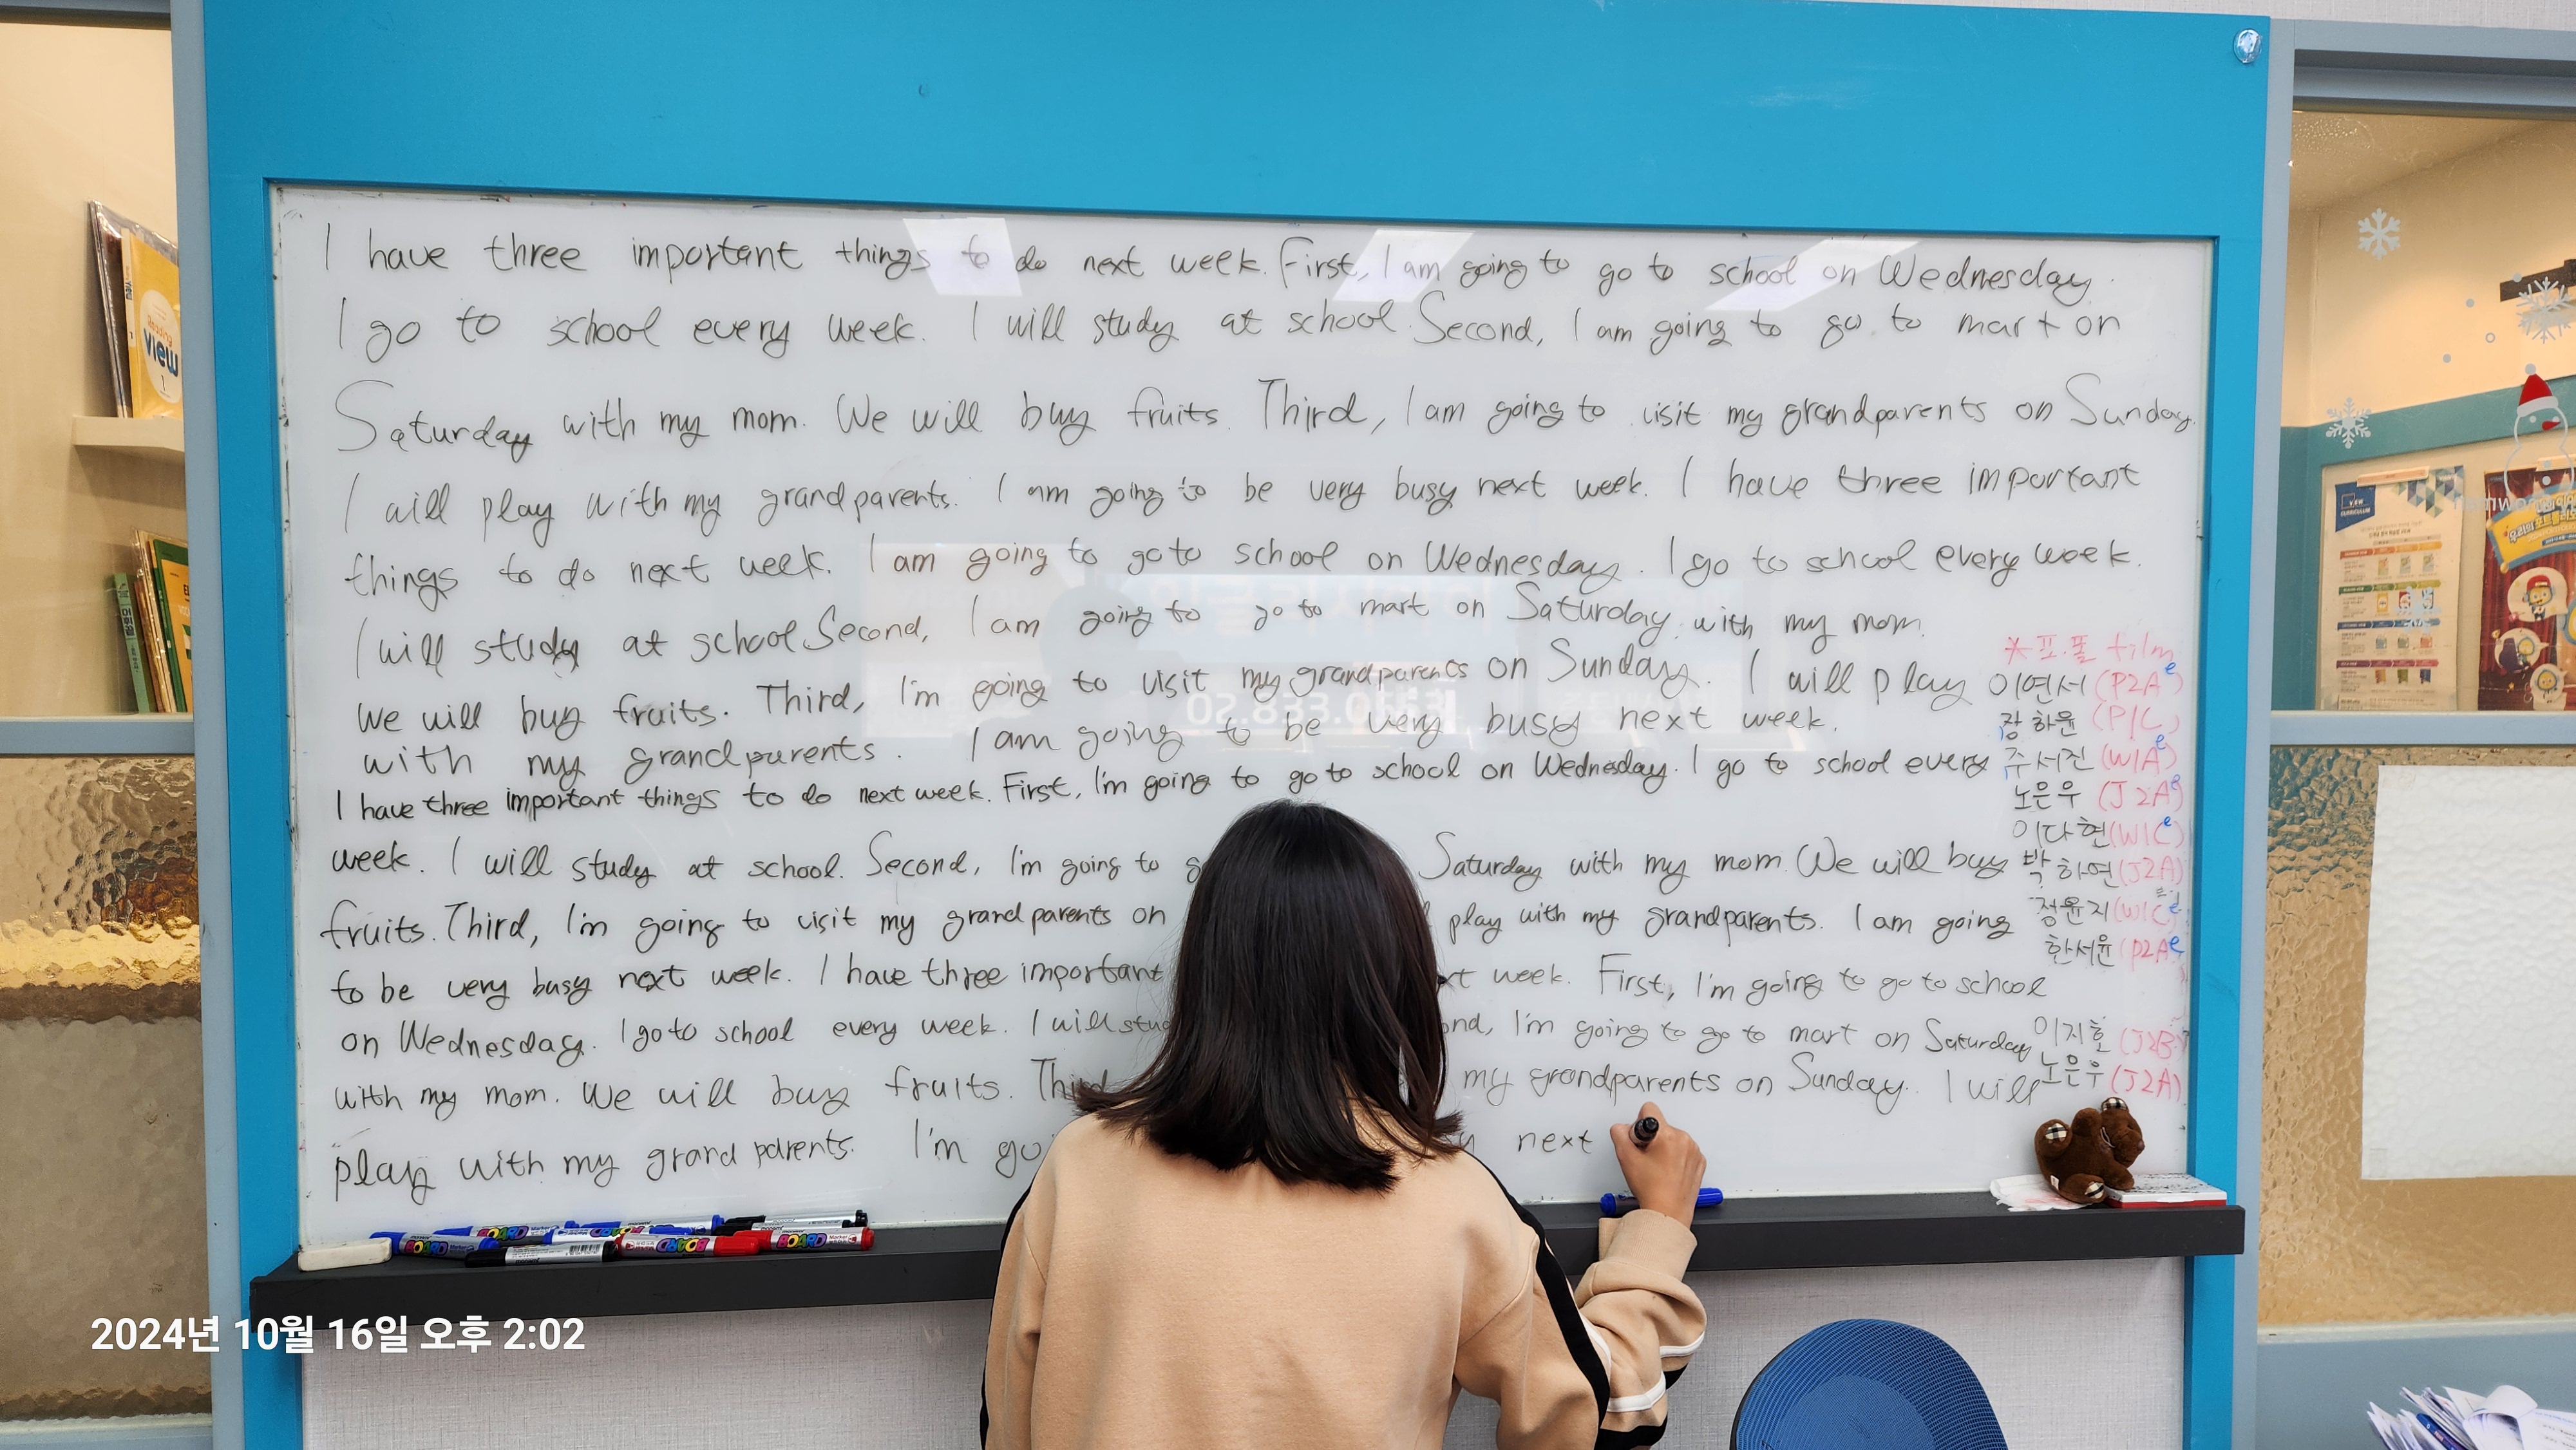 I have three important things to do next week. First, I am going to go to school on Wednesday.
I go to school every week. I will study at school. Second, I am going to go to mart on
Saturday with my mom. We will buy fruits. Third, I am going to visit my grandparents on Sunday.
I will play with my grandparents. I am going to be very busy next week. I have three important
things to do next week. I am going to go to school on Wednesday. I go to school every week.
I will study at school Second, I am going to go to mart on Saturday with my mom.
We will buy fruits. Third, I'm going to visit my grandparents on Sunday. I will play
with my grandparents. I am going to be very busy next week.
I have three important things to do next week. First, I'm going to go to school on Wednesday. I go to school every
week. I will study at school. Second, I'm going to Saturday with my mom. We will buy
fruits. Third, I'm going to visit my grandparents on play with my grandparents. I am going
to be very busy next week. I have three important week. First, I'm going to go to school
on Wednesday. I go to school every week. I will I'm going to go to mart on Saturday
with my mom. We will buy fruits. my grandparents on Sunday. I will
play with my grandparents. I'm next
*포.폴 film
이연서 (P2A e)
장하윤 (P1C)
주서진 (W1A e)
노은우 (J2A e)
이다현 (W1C e)
박하연 (J2A)
정윤지 (W1C
한서윤 (P2A e
이지호 (J2B)
노은우 (J2A)
Reading
VIEW
1
BOARD
BOARD
BOARD
BOARD
2024년 10월 16일 오후 2:02